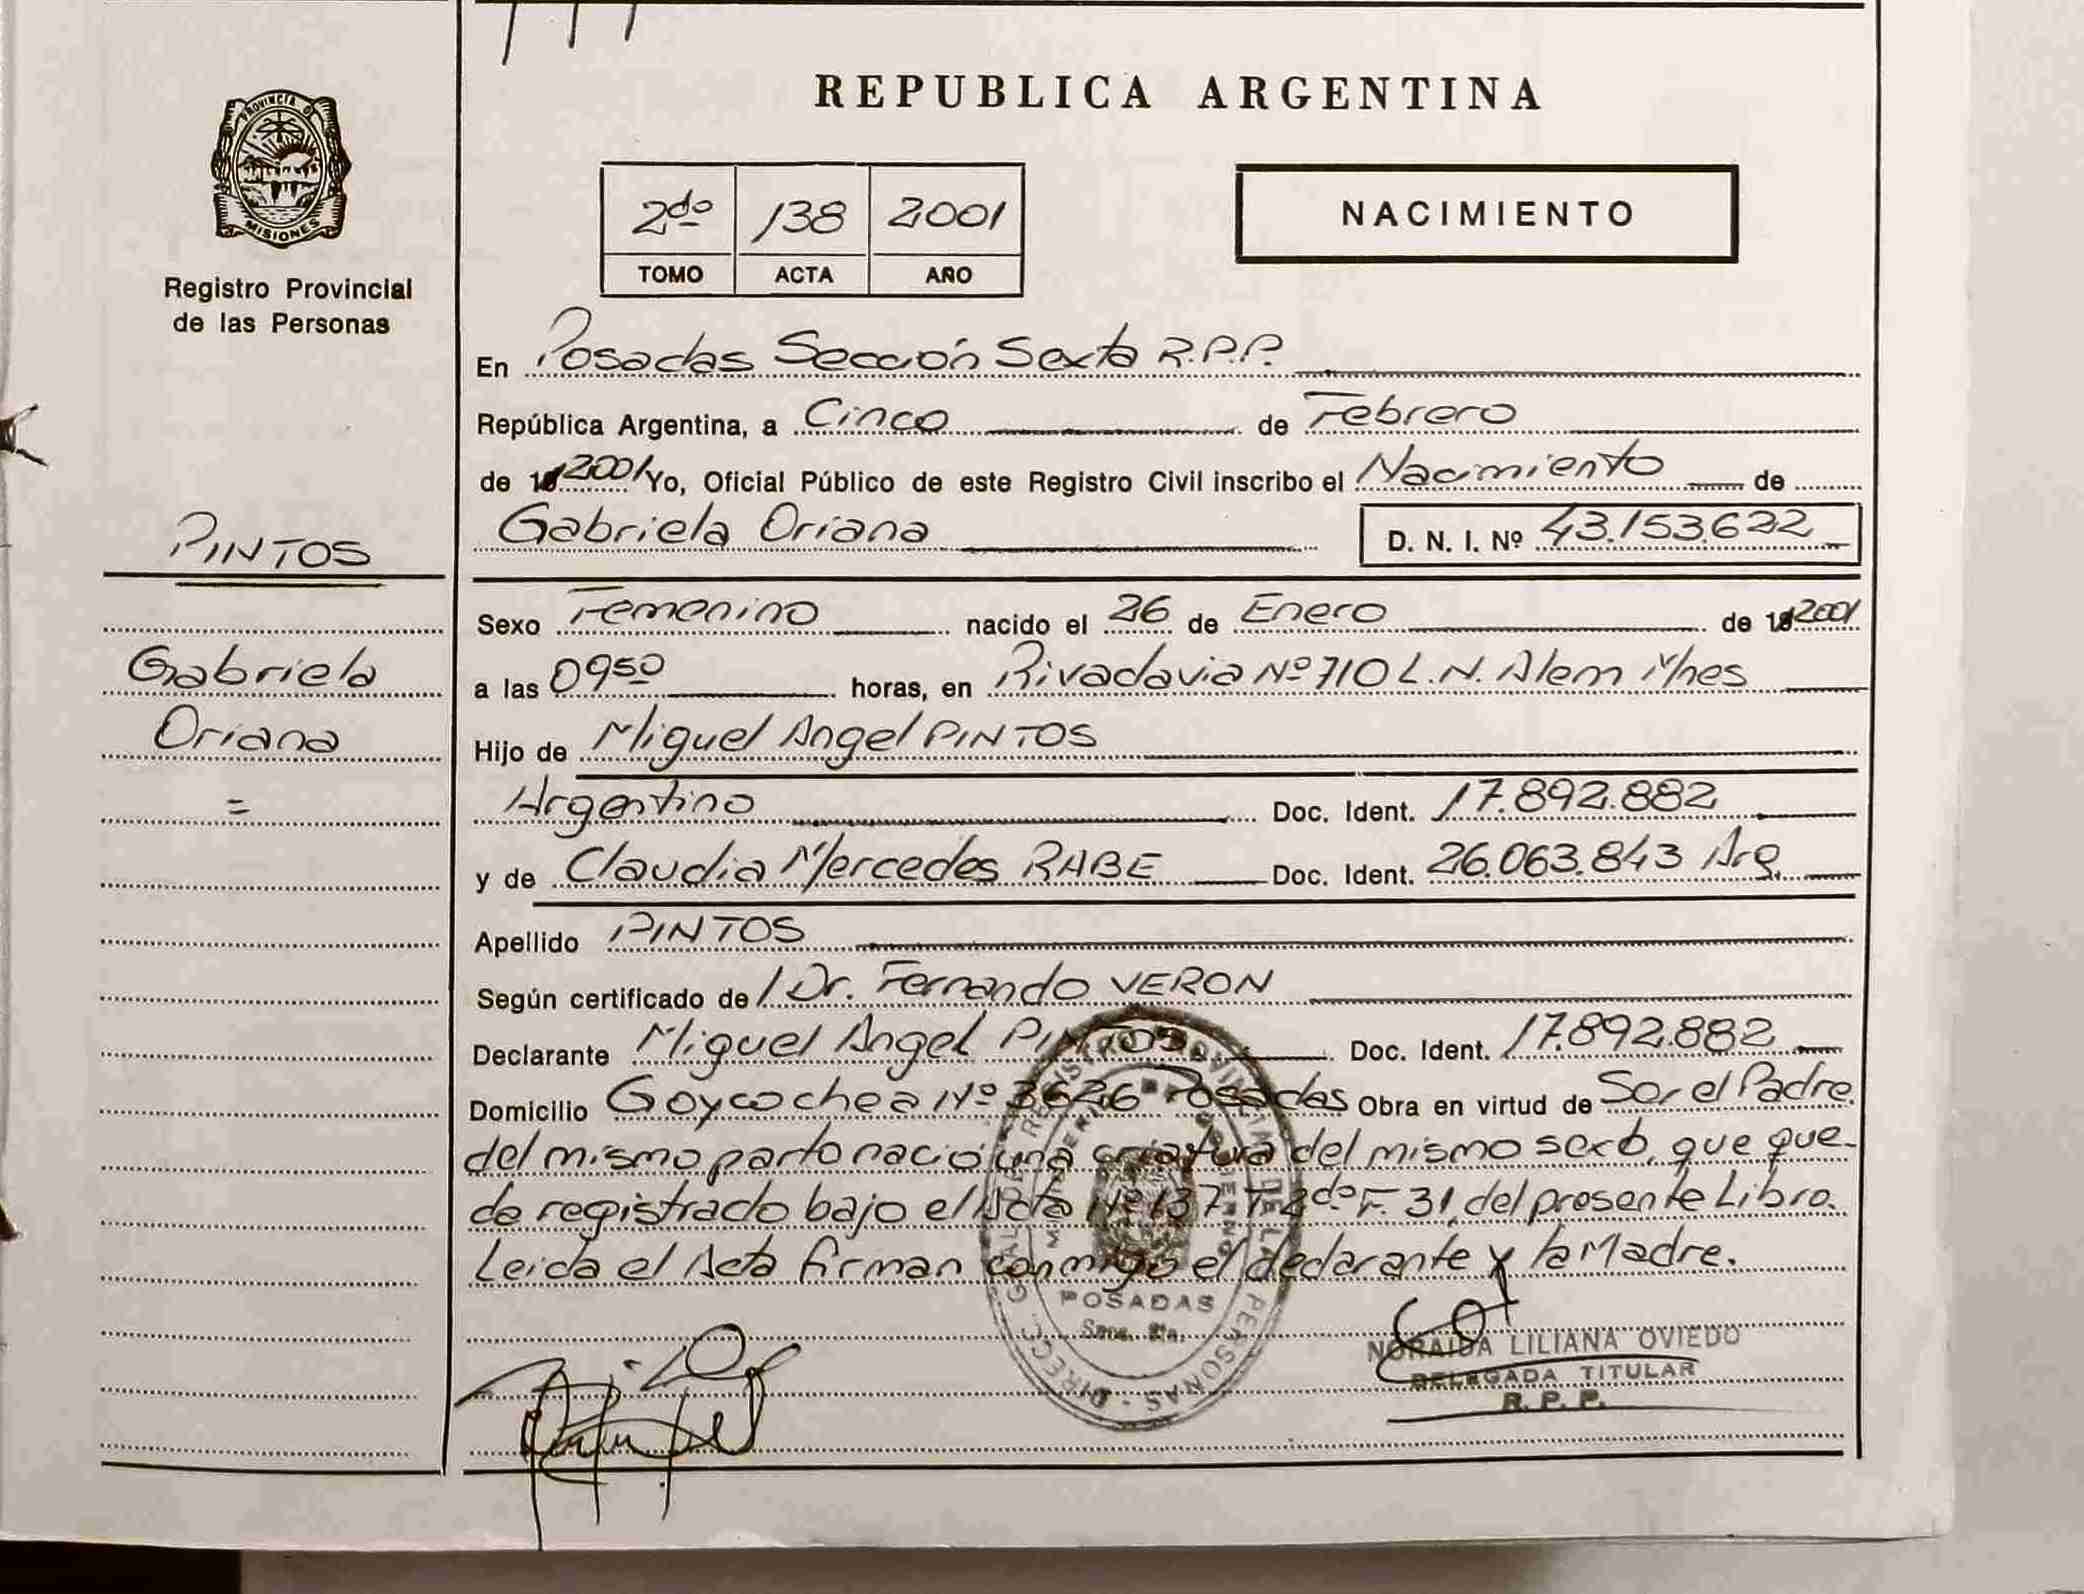 REPUBLICA ARGENTINA
PROVINCIA DE
MISIONES
Registro Provincial
de las Personas
2do 138 2001
TOMO ACTA AÑO
NACIMIENTO
En Posadas Sección Sexta R.P.P.
República Argentina, a Cinco de Febrero
de 2001 Yo, Oficial Público de este Registro Civil inscribo el Nacimiento de
Gabriela Oriana D. N. I. Nº 43.153.622
PINTOS
Gabriela
Oriana
=
Sexo Femenino nacido el 26 de Enero de 2001
a las 09 50 horas, en Rivadavia Nº 710 L.N. Alem Mnes
Hijo de Miguel Angel PINTOS
Argentino Doc. Ident. 17.892.882
y de Claudia Mercedes RABE Doc. Ident. 26.063.843 Arg.
Apellido PINTOS
Según certificado de Dr. Fernando VERON
Declarante Miguel Angel PINTOS Doc. Ident. 17.892.882
Domicilio Goycochea Nº 3626 Posadas Obra en virtud de Ser el Padre.
del mismo parto nació una criatura del mismo sexo, que que-
da registrado bajo el Acta Nº 137 Tº 2do F. 31, del presente Libro.
Leida el Acta firman conmigo el declarante y la Madre.
POSADAS
NORAIDA LILIANA OVIEDO
DELEGADA TITULAR
R. P. P.